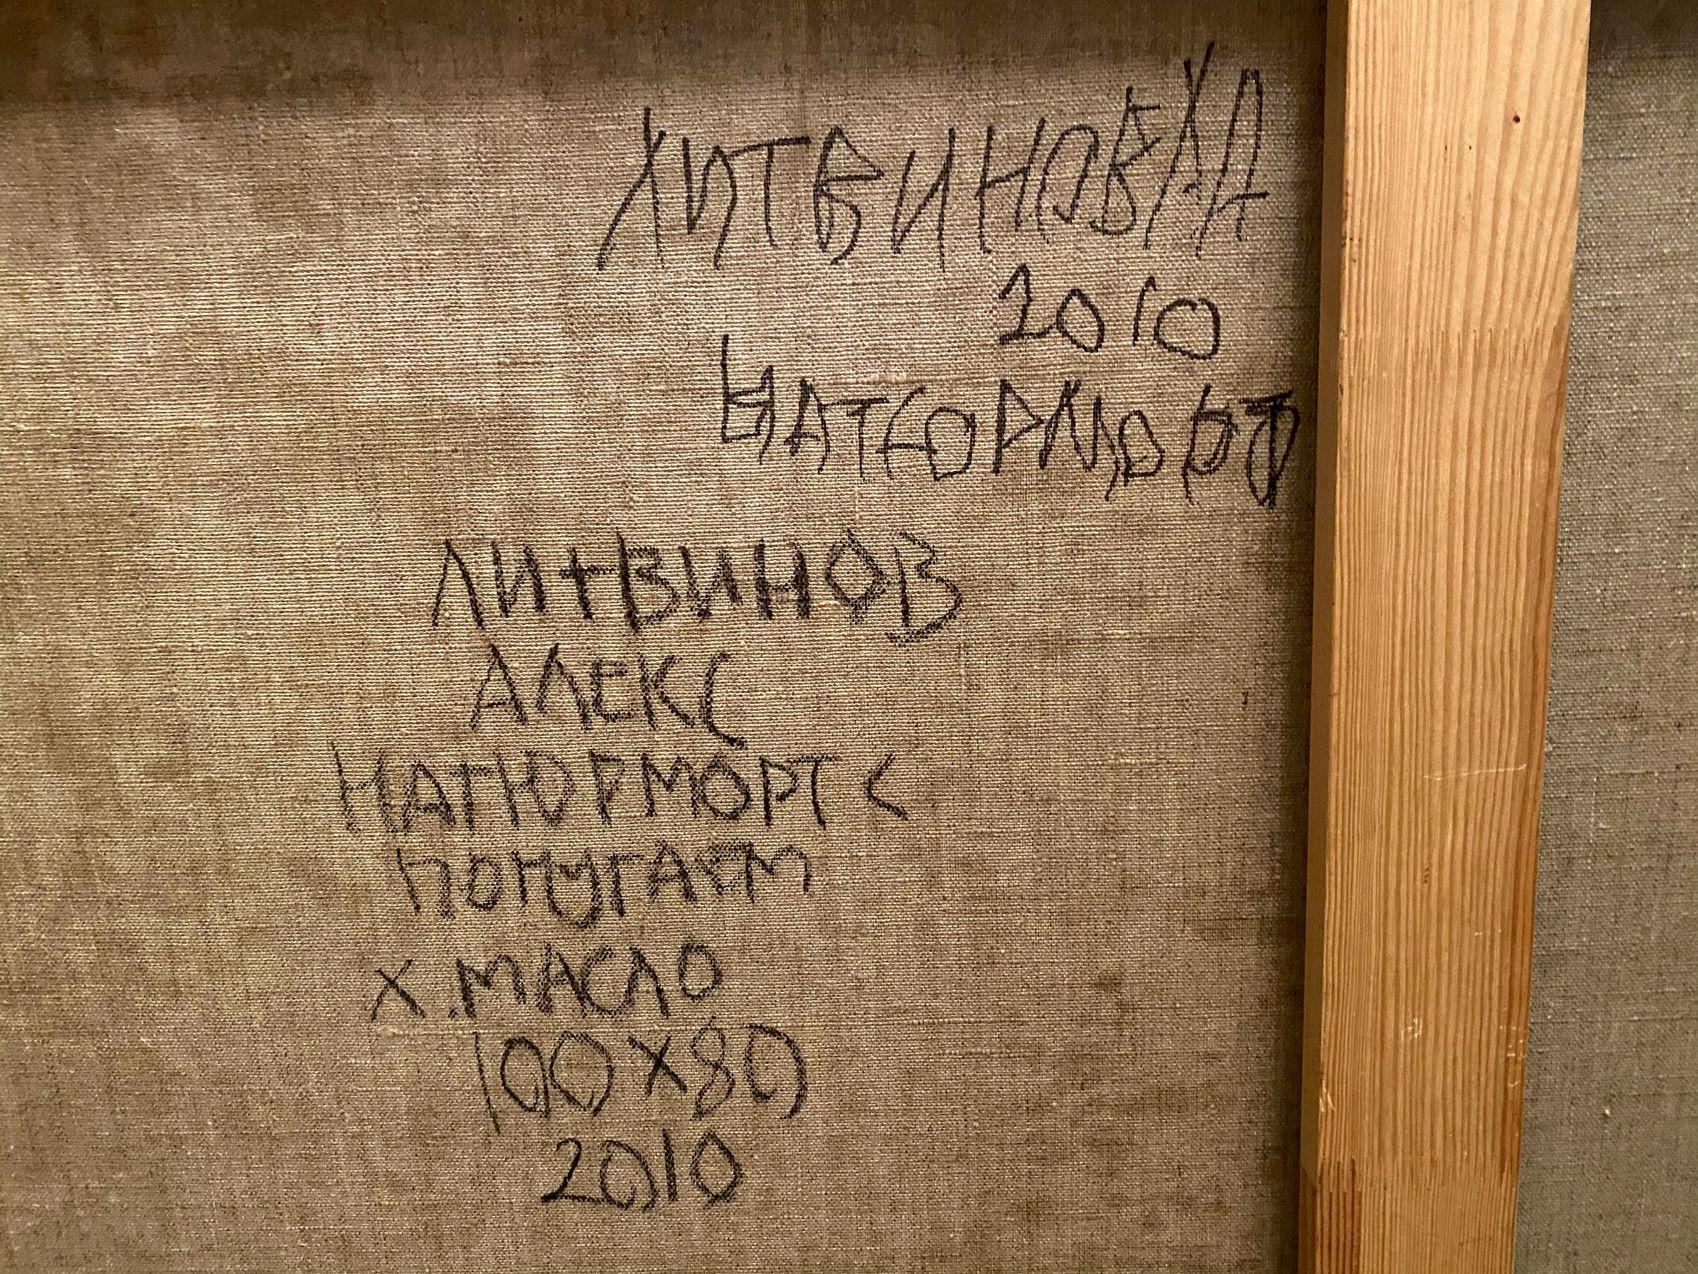 ЛИТВИНОВ АЛ
2010
НАТЮРМОРТ
ЛИТВИНОВ
АЛЕКС
НАТЮРМОРТ С
ПОПУГАЕМ
Х.МАСЛО
100X80
2010